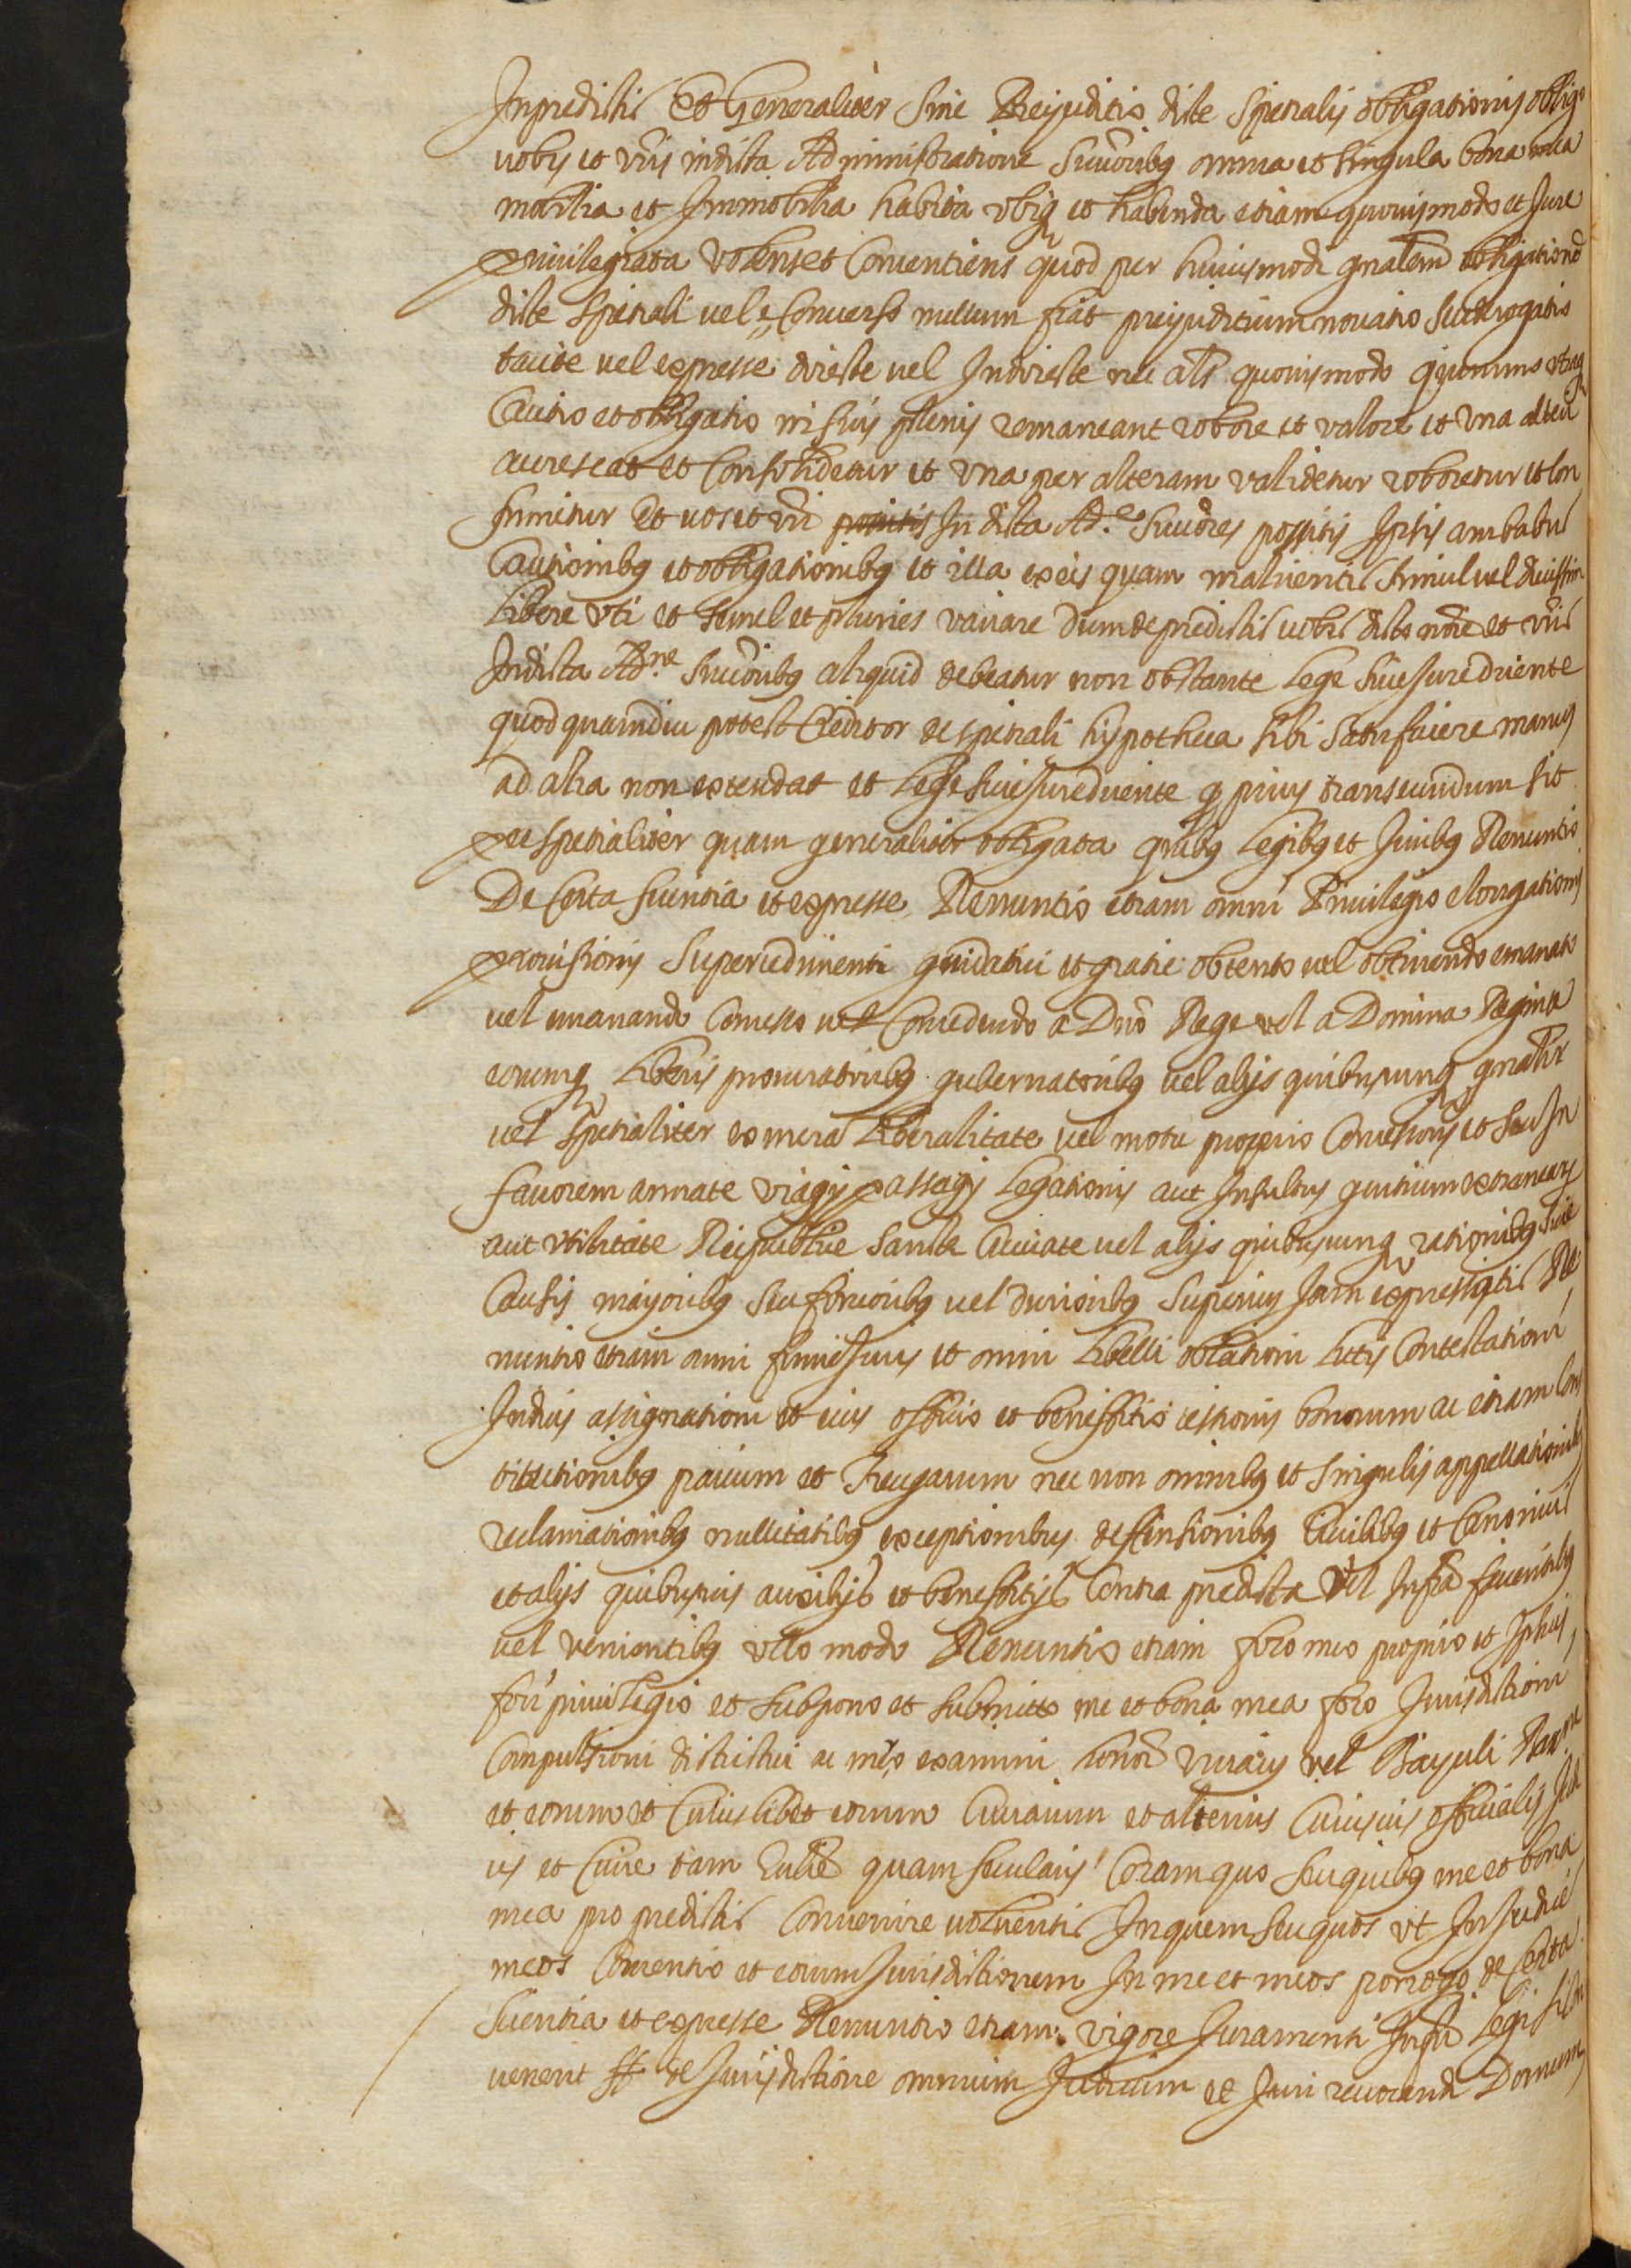 Inpredictis Et Generaliter sine Preiuditio dicte spetialis obligationis obligo
uobis et vris indicta Administratione Succoribq omnia et singula bona mea
mobilia et Immobilia habita vbiq et habenda etiam quouismodo et Jure
priuilegiata volens et Consentiens quod per huiusmodi gnalem obligationẽ
dicte spetiali uel e Conuerso nullum fiat preiuditium nouatio seu derogatio
tacite uel expresse directe uel Indirecte nec als quouismodo quominus vtraq
Cautio et obligatio in suis plenis remaneant robore et valore et vna alteri
accrescat et Consolidetur et vna per alteram validetur roboretur et Con
firmetur Et uos et vri In dicta Ad.e Succores possitis Ipsis ambabus
Cautionibq et obligationibq et illa ex eis quam malueritis simul uel diuisim
Libere vti et semel et pluries variare dum de predictis uobis dicto noie et vris
Indicta Ad.ne Succoribq aliquid debeatur non obstante Lege siue Jure dicente
quod quamdiu potest Creditor de spetiali hypotheca sibi satisfacere manus
ad alia non extendat et Lege siue Jure dicente q prius transeundum sit
per spetialiter quam generaliter obligata quibq Legibq et Juribq Renuntio
De Certa scientia et expresse Renuntio etiam omni Priuilegio elongationis
prouisionis Supersedimenti guidatici et gratie obtento uel obtinendo emanato
uel emanando Concesso uel Concedendo a Dno Rege vel a Domina Regina
eorumq Liberis procuratoribq gubernatoribq uel alijs quibuscunq gnalir
uel spetialiter ex mera Liberalitate uel motu proprio Concessoris et seu In
fauorem armate viagij passagij Legationis aut Insultus gentium extranearq
aut vtilitate Reipublice Sancte Cruciate uel alijs quibuscunq rationibq siue
Causis majoribq seu fortioribq uel durioribq superius Jam expressatis Re
nuntio etiam omni firme Juris et omni Libelli oblationi Litis Contestationi
Judicis assignationi et eius officio et benefficio cessionis bonorum ac etiam Cons
titutionibq pacium et treugarum nec non omnibq et singulis appellationibq
reclamationibq nullitatibq exceptionibus deffensionibq Ciuilibq et Canonicis
et alijs quibusuis auxilijs et benefficijs Contra predicta vel Infra facientibq
uel venientibq vllo modo Renuntio etiam foro meo proprio et Ipsius
fori priuilegio et subpono et submitto me et bona mea foro Jurisdictioni
Compulsioni districtui ac mero examini honor Vicarij vel Bajuli Bar.ne
et eorum et Cuiuslibet eorum Curarum et alterius Cuiusuis officialis Jud
icis et Curie tam Eccliẽ quam secularis Coram quo seu quibq me et bona
mea pro predictis Conuenire uolueritis Inquem seu quos vt In Judicẽ
meos Consentio et eorum Jurisdictionem In me et meos prorogo de Certa
scientia et expresse Renuntio etiam vigore Juramenti Infri Legi si Con
uenerit ff de Jurisdictione omnium Judicum et Juri reuocandi Domum